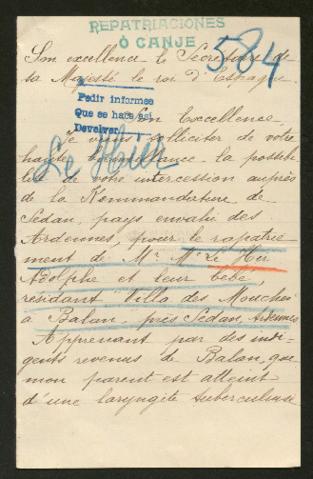 REPATRIACIONES
Ó CANJE
584
Son excellence le Secrétaire de
sa Majesté le roi d'Espagne.
Pedir informes
Que se hace así
Devolver
Son Excellence
Le Hier
Je viens solliciter de votre
haute bienveillance la possibi-
lité de votre intercession auprès
de la Kommandature de
Sedan, pays envahi des
Ardennes, pour le rapatrie-
ment de Mr Me Le Hier
Adolphe et leur bébé,
résidant villa des Mouches
à Balan, près Sedan, Ardennes
Apprenant par des indi-
gents revenus de Balan, que
mon parent est atteint
d'une laryngite tuberculeuse